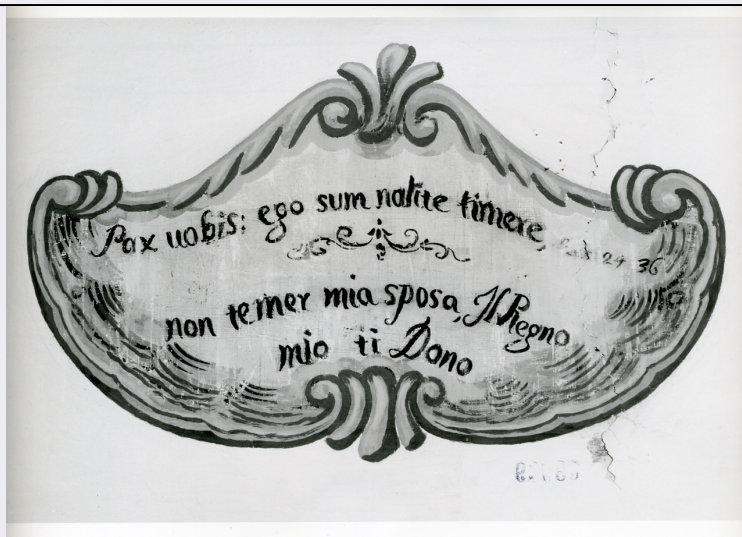 Pax uobis: ego sum nolite timere, 24 36
non temer mia sposa, Il Regno
mio ti Dono